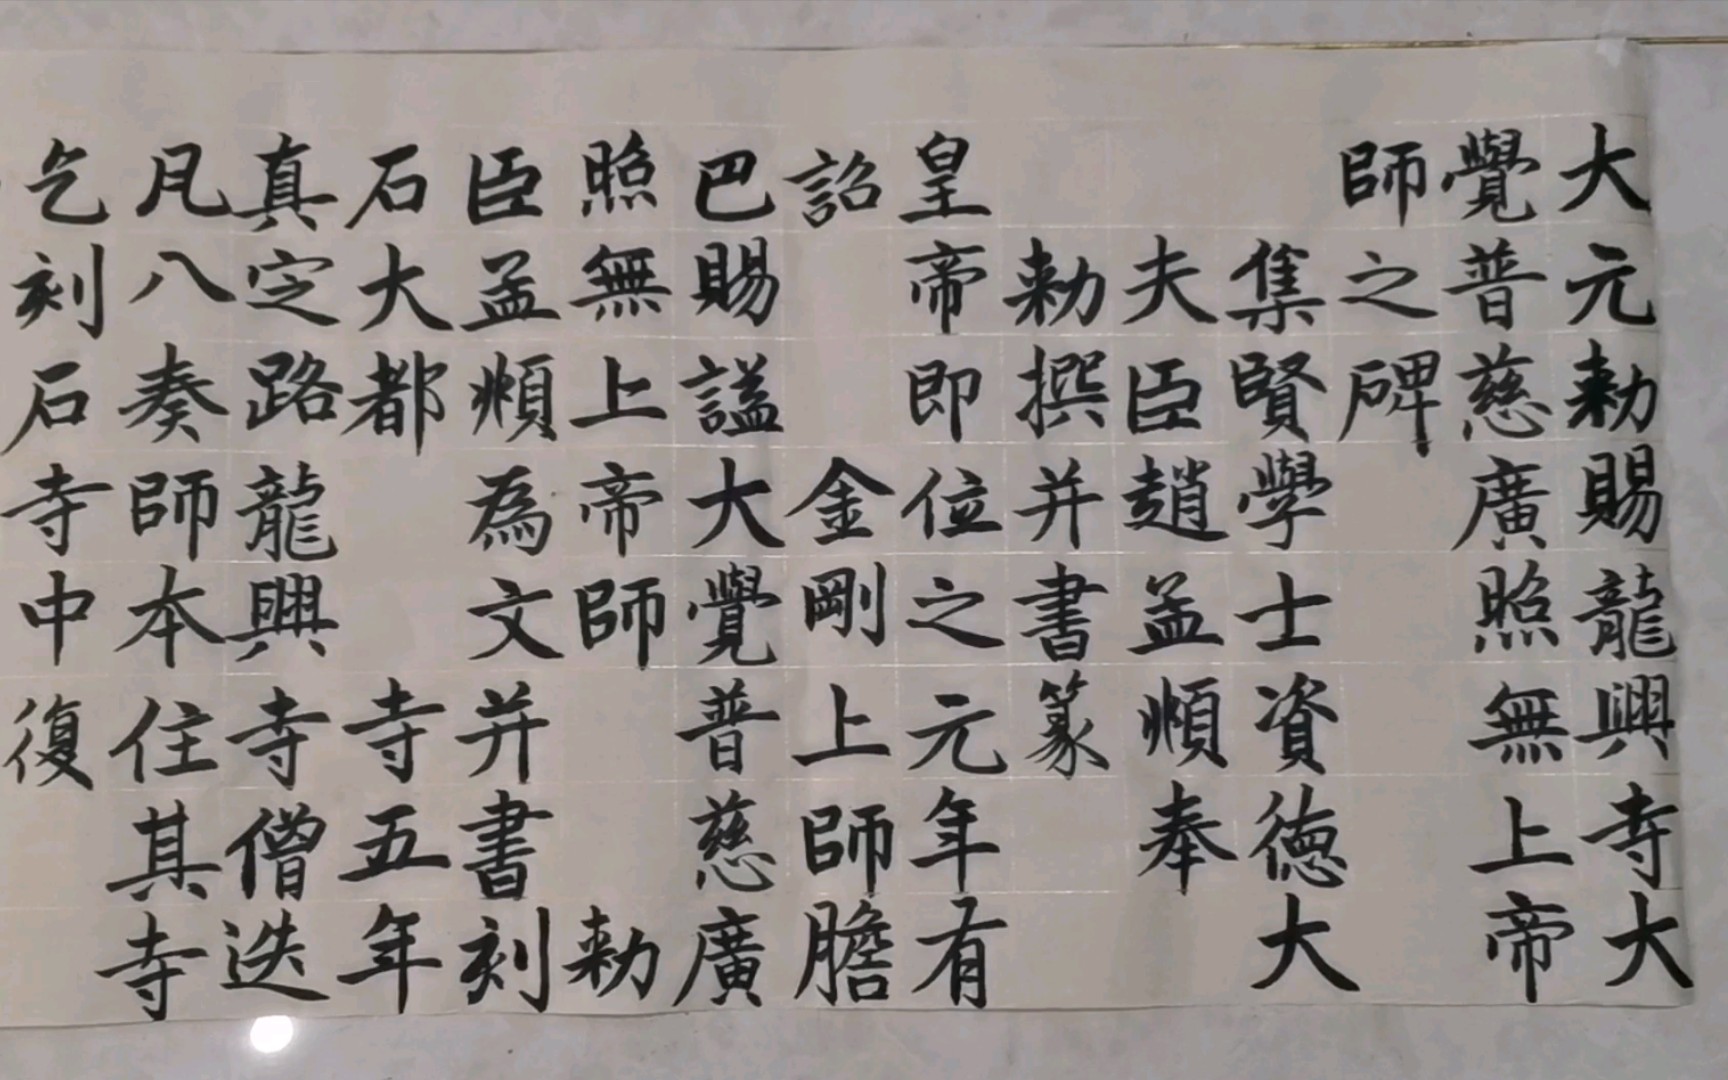 大元勅賜龍興寺大
覺普慈廣照無上帝
師之碑
集賢學士資德大
夫臣趙孟頫奉
勅撰并書篆
皇帝即位之元年有
詔金剛上師膽
巴賜謚大覺普慈廣
照無上帝師勅
臣孟頫為文并書刻
石大都寺五年
真定路龍興寺僧迭
凡八奏師本住其寺
乞刻石寺中復